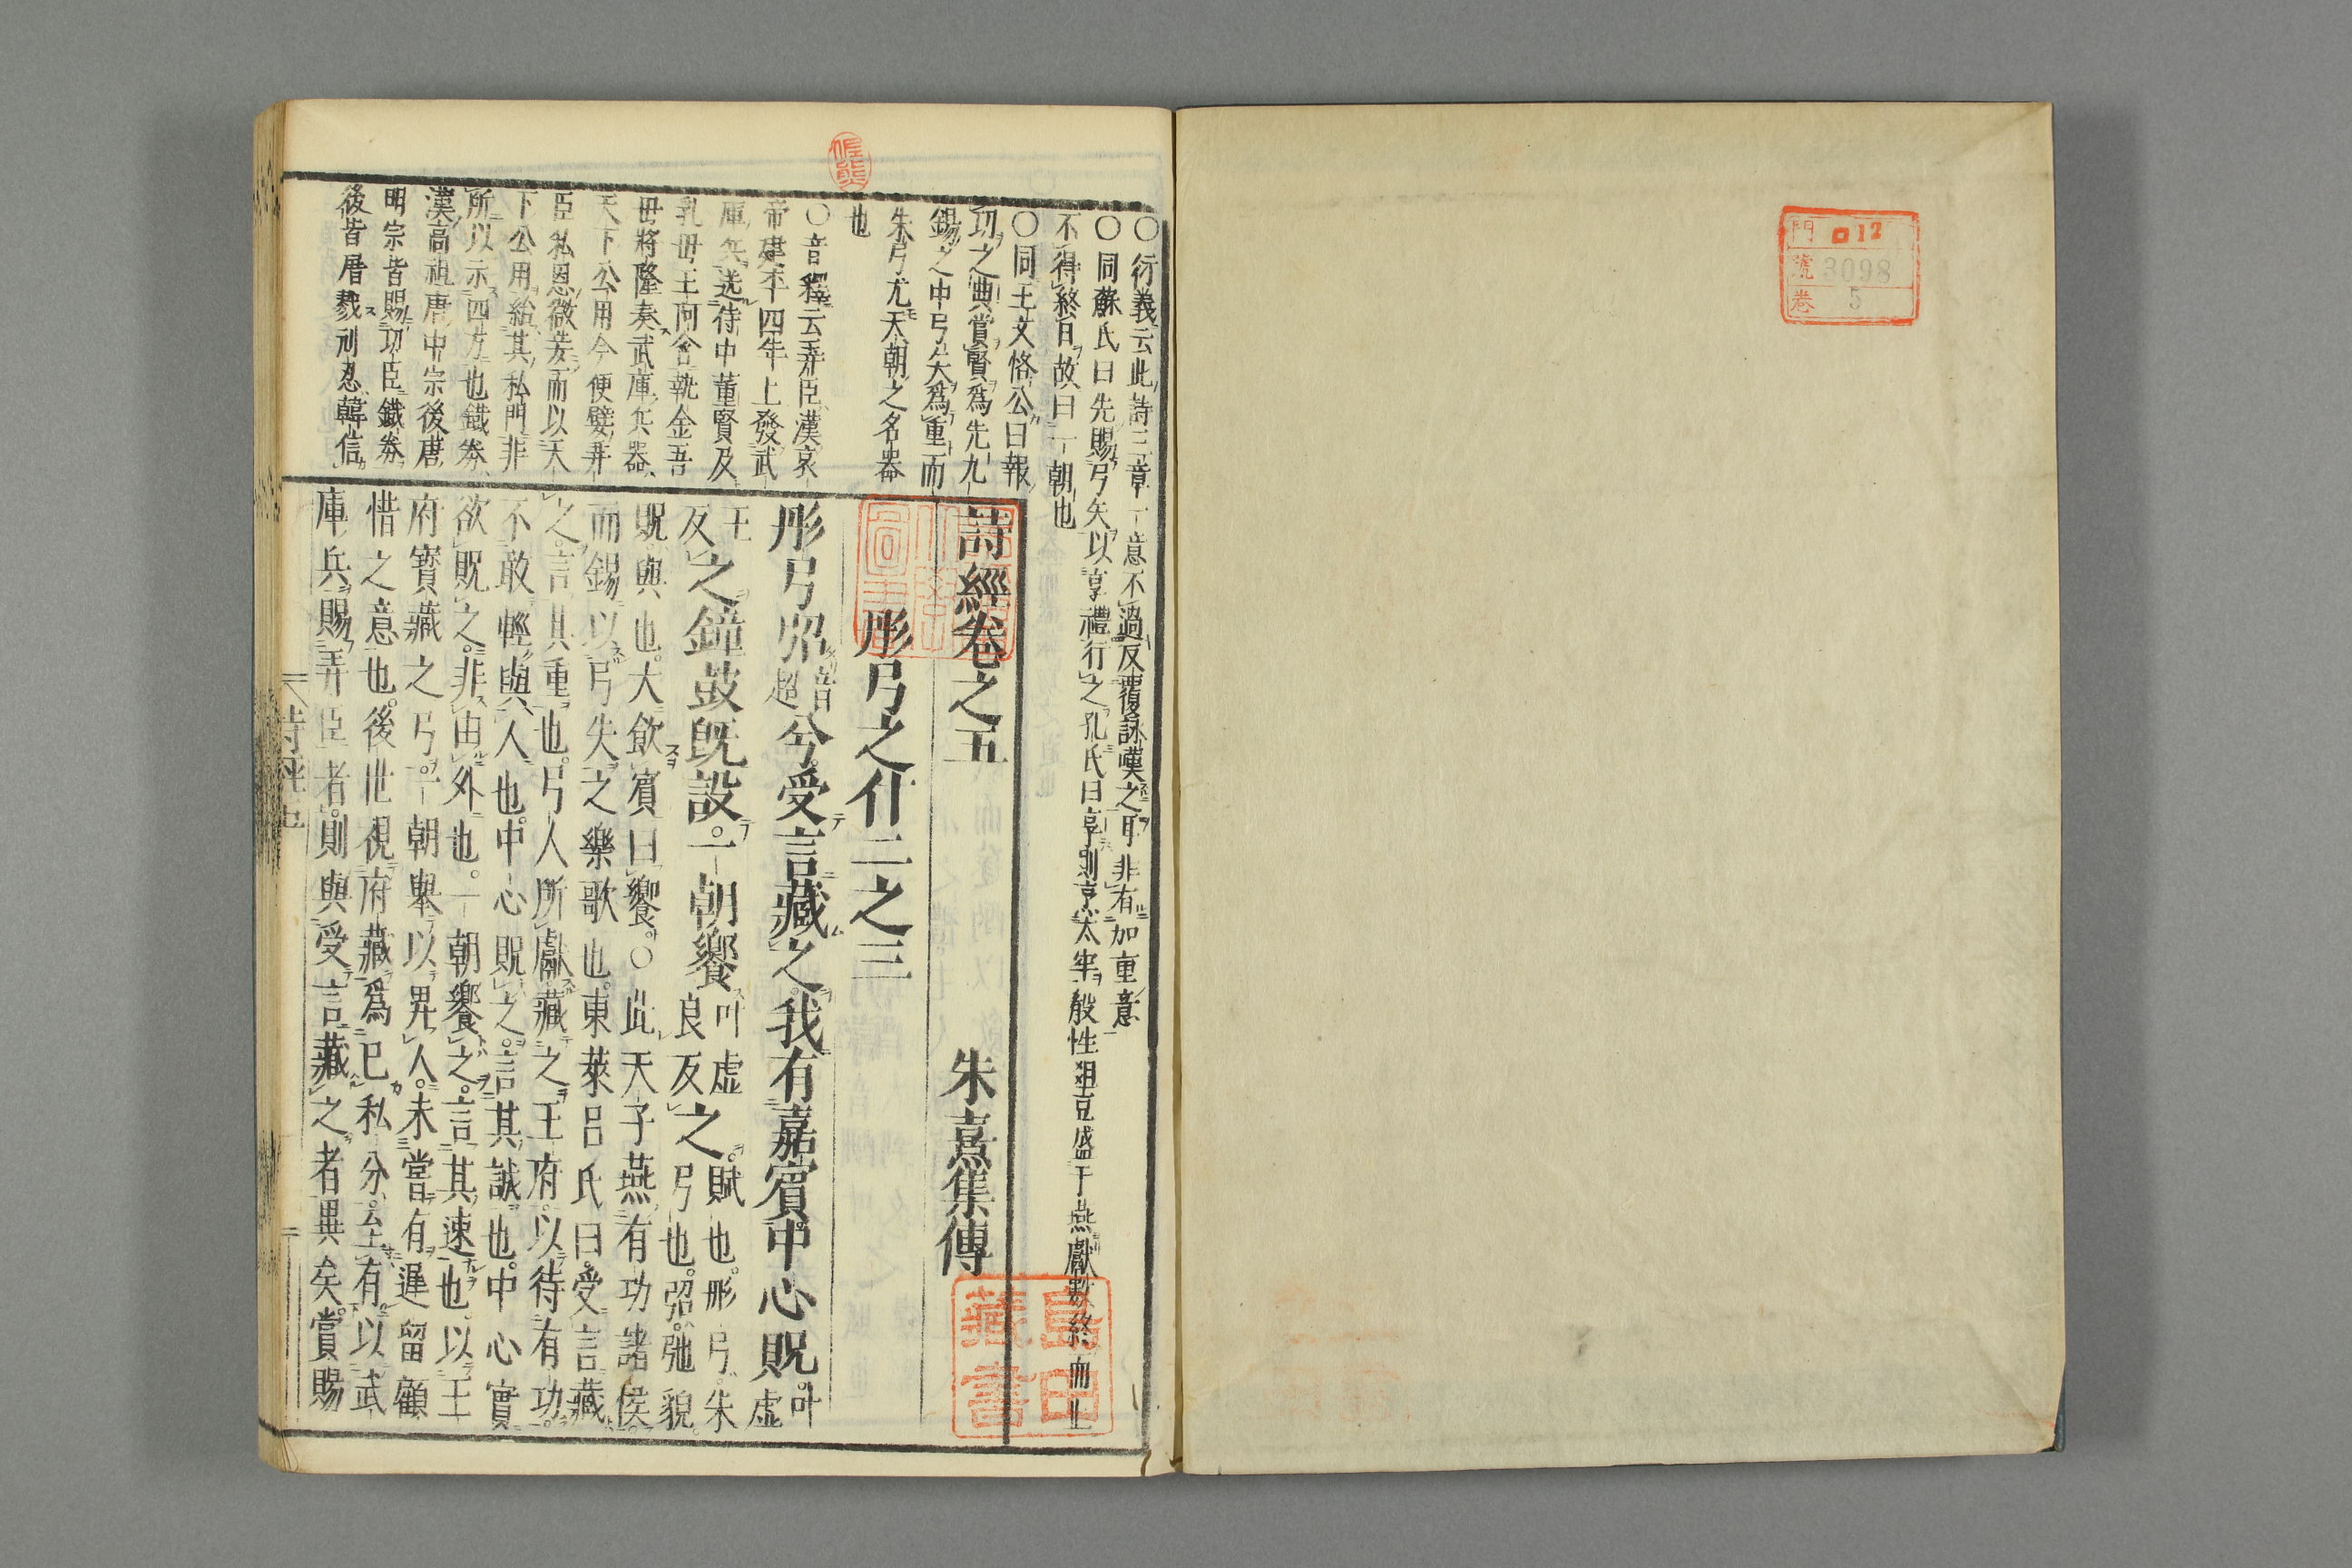 門 ロ12
號 3098
卷 5
○衍義云此詩三章一意不過反覆詠嘆之耳非有加重意
○同蘇氏曰先賜弓矢以享禮行之孔氏曰享則烹太牢殽性俎豆盛于燕獻數終而止
不得終日故曰一朝也
○同王文恪公曰報
功之典賞賢爲先九
錫之中弓矢爲重而
朱弓尤天朝之名器
也
○音釋云弄臣漢哀
帝建平四年上發武
庫兵送侍中董賢及
乳母王阿舍執金吾
毋將隆奏武庫兵器
天下公用今便嬖弄
臣私恩微妾而以天
下公用給其私門非
所以示四方也鐵券
漢高祖唐中宗後唐
明宗皆賜功臣鐵券
後皆屠戮刖忍韓信
詩經卷之五
朱熹集傳
彤弓之什二之三
彤弓弨音超兮受言藏之我有嘉賓中心貺叶虛
王反之鐘鼓既設一朝饗叶虛良反之賦也彤弓朱弓也弨弛貌
貺與也大飮賓曰饗○此天子燕有功諸侯
而錫以弓矢之樂歌也東萊呂氏曰受言藏
之言其重也弓人所獻藏之王府以待有功
不敢輕與人也中心貺之言其誠也中心實
欲貺之非由外也一朝饗之言其速也以王
府寳藏之弓一朝舉以畀人未嘗有遲留顧
惜之意也後世視府藏爲己私分至有以武
庫兵賜弄臣者則與受言藏之者異矣賞賜
島田
藏書